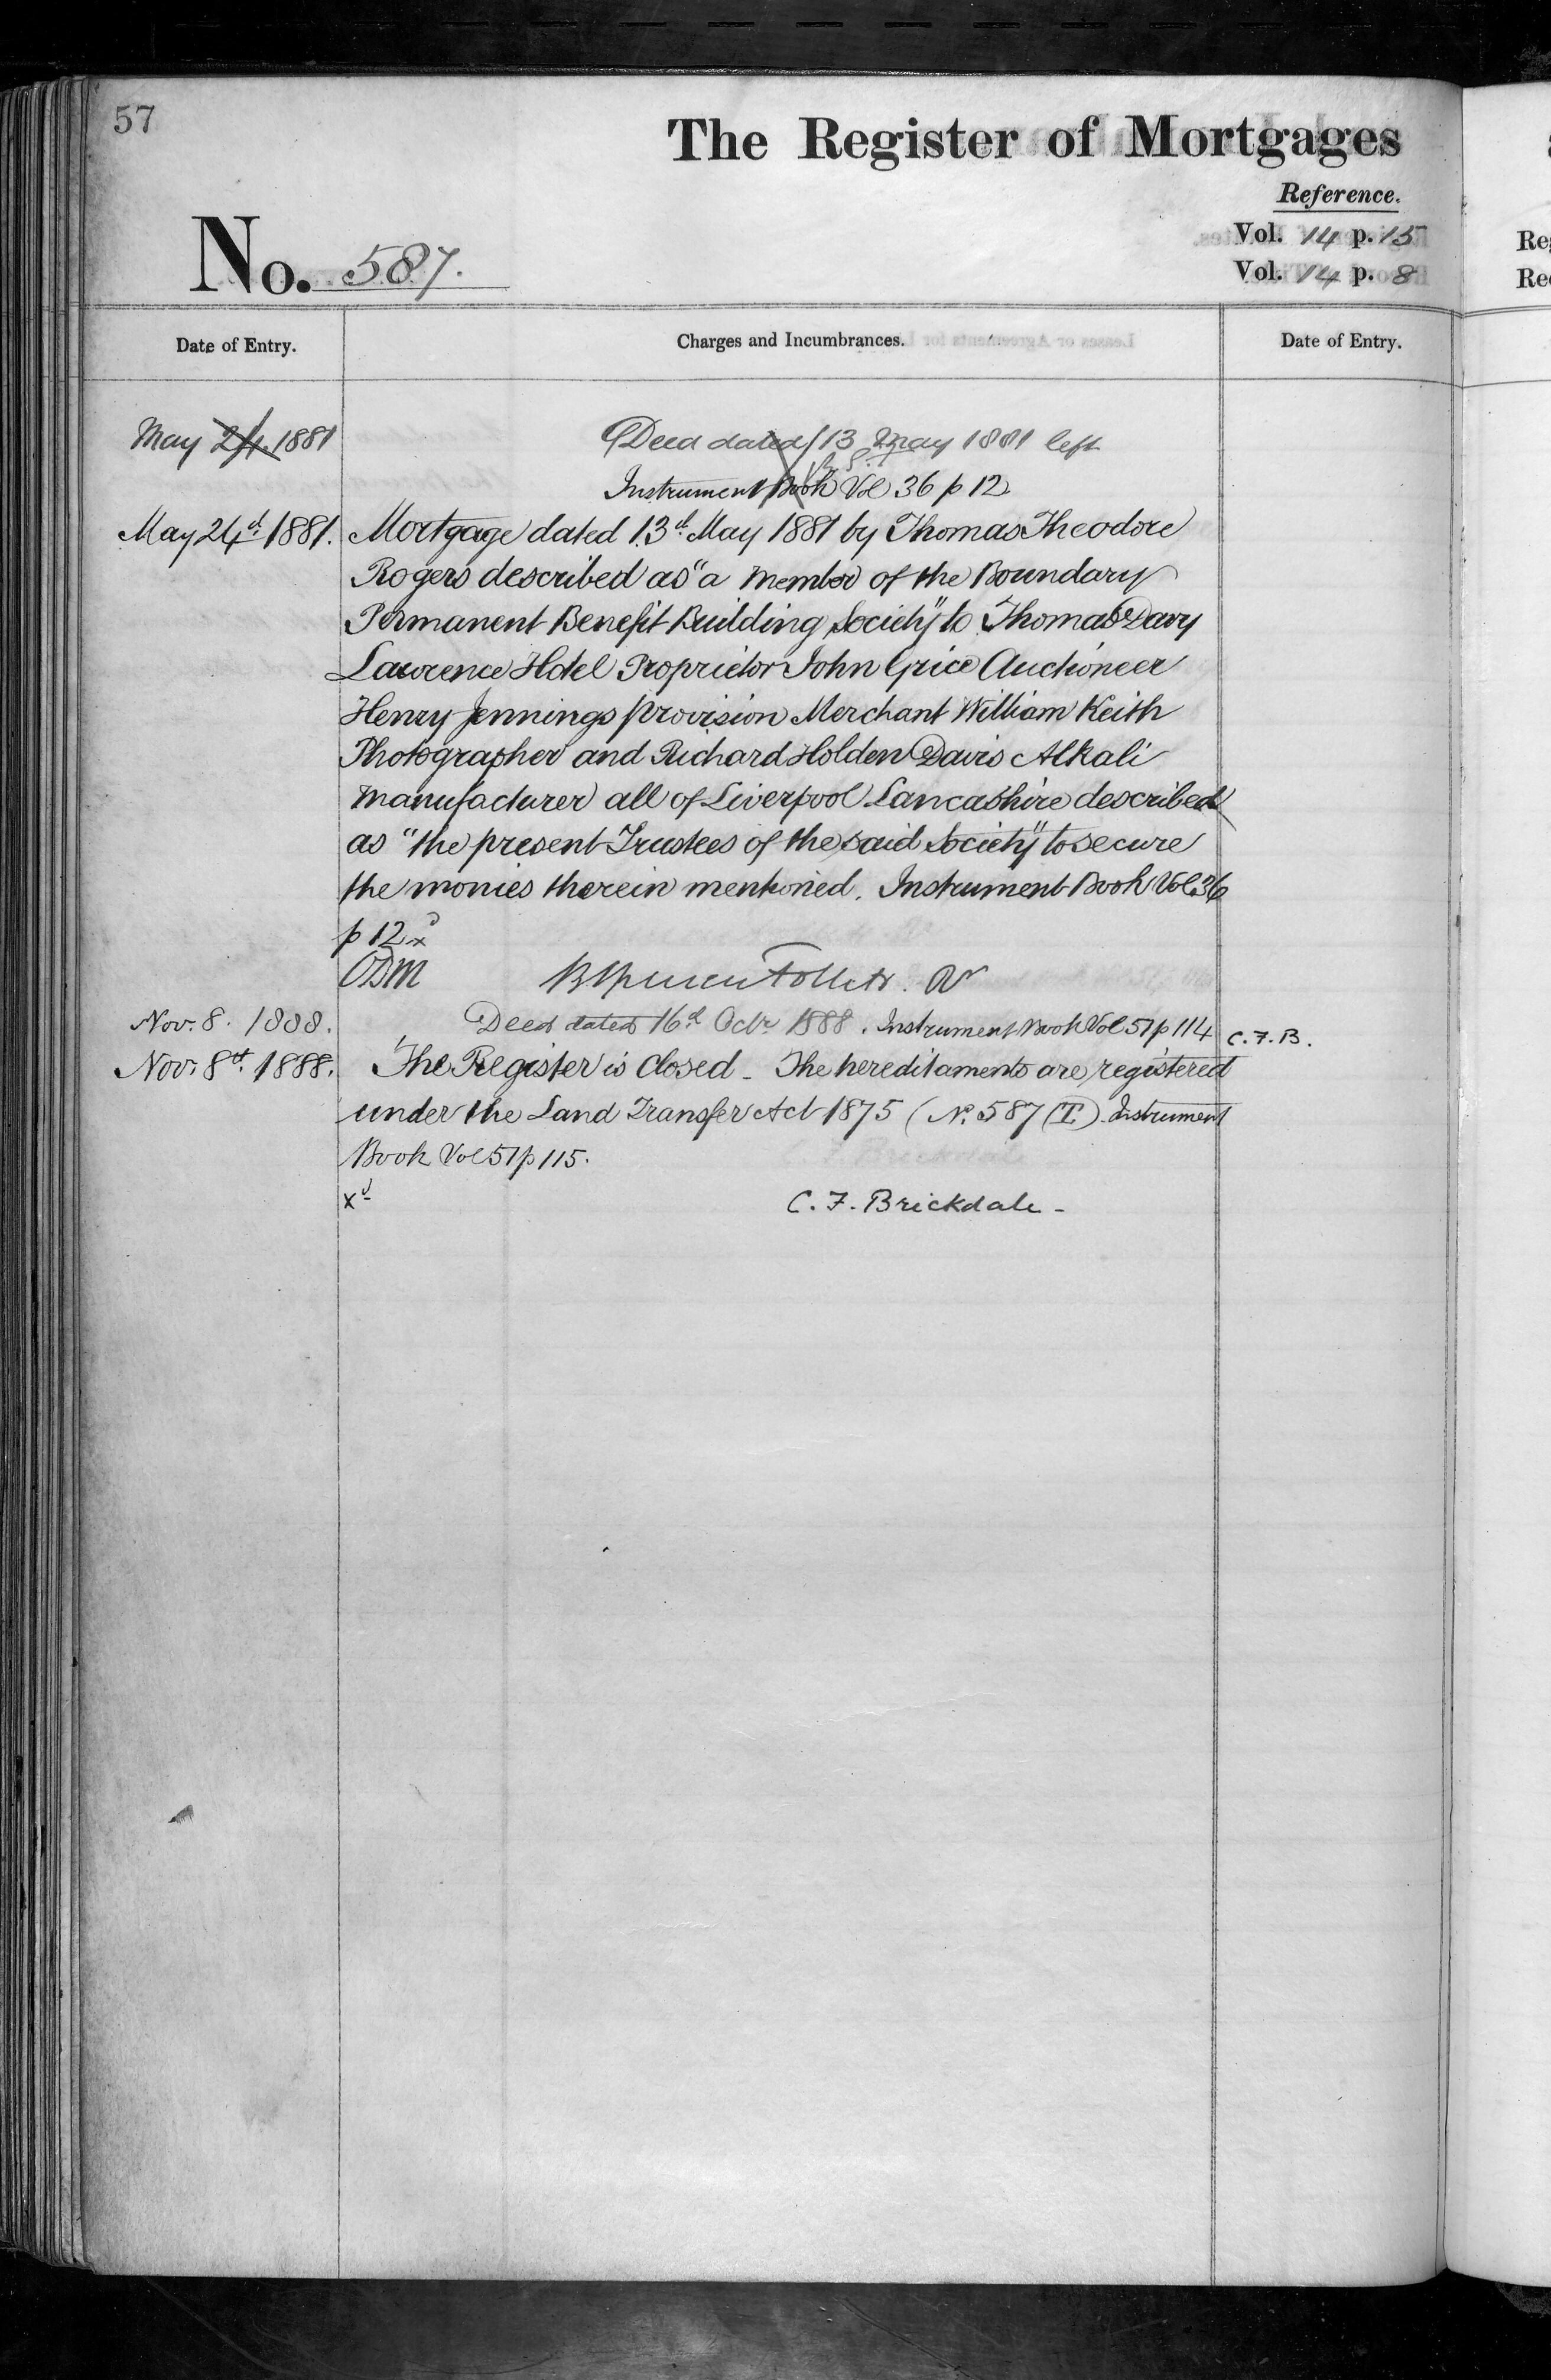 57
The Register of Mortgages
Reference.
Vol. 14 p. 15
No. 587.
Vol. 14 p. 8
Date of Entry.
Charges and Incumbrances.
Date of Entry.
May 24. 1881
Deed dated 13 May 1881 left
Instrument Book Vol 36 p 12
May 24th 1881.
Mortgage dated 13th May 1881 by Thomas Theodore
Rogers described as "a member of the Boundary
Permanent Benefit Building Society" to Thomas Davy
Lawrence Hotel Proprietor John Grice Auctioneer
Henry Jennings Provision Merchant William Keith
Photographer and Richard Holden Davis Alkali
Manufacturer all of Liverpool Lancashire described
as "the present Trustees of the said Society" to secure
the monies therein mentioned. Instrument Book Vol 36
p 12 xd
Nov. 8. 1888.
Deed dated 16th Octr 1888. Instrument Book Vol 51 p 114
C. F. B.
Nov. 8th 1888.
The Register is Closed - The hereditaments are registered
under the Land Transfer Act 1875 (No 587 (T). Instrument
Book Vol 51 p 115.
xd
C. F. Brickdale -
Re
Re